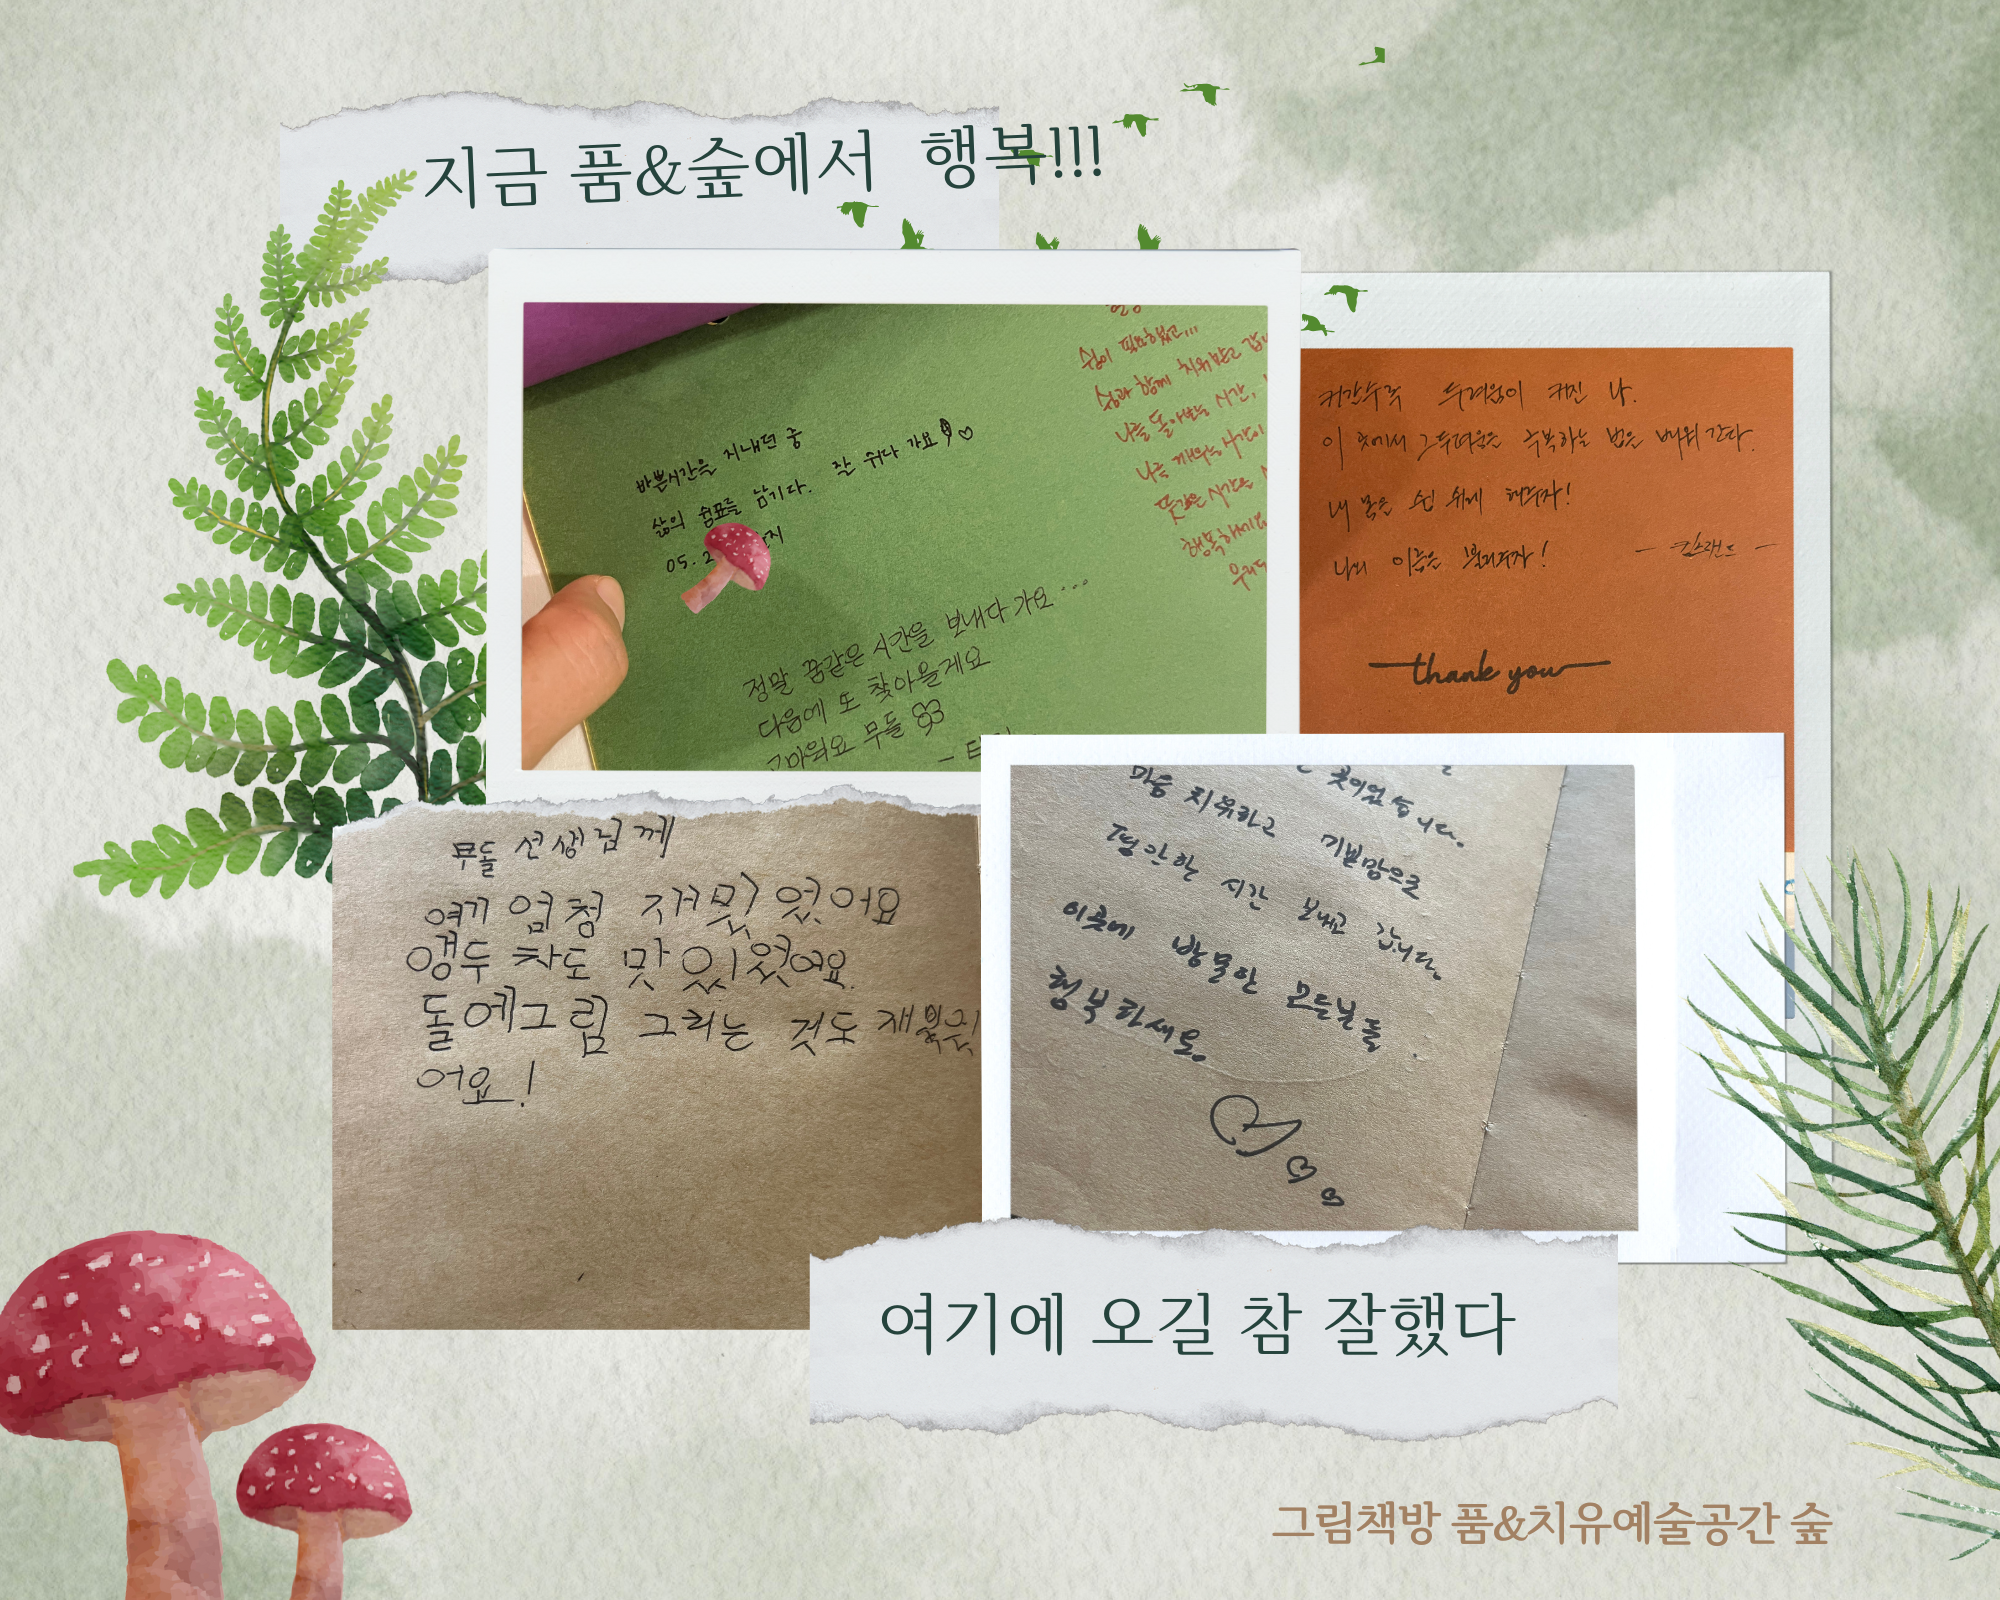 지금 품&숲에서 행복!!!
바쁜시간을 지내던 중
삶의 쉼표를 남기다. 잘 쉬다 가요♡
05. 2
정말 꿈같은 시간을 보내다 가요 ...
다음에 또 찾아올게요
고마워요 무돌
쉼이 필요했고...
숲과 함께 치유받고 갑니
나를 돌아보는 시간,
나를 깨우는 시간이
뜻깊은 시간을
행복하세요
커갈수록 두려움이 커진 나.
이 곳에서 그 두려움을 극복하는 법을 배워 간다.
내 몸을 쉽 쉬게 해주자!
나의 이름은 불러주자!
thank you
무돌 선생님께
여기 엄청 재밌었어요
앵두 차도 맛있었어요.
돌에그림 그리는 것도 재밌었
어요!
곳이었습니다.
마음 치유하고 기쁜맘으로
평안한 시간 보내고 갑니다.
이곳에 방문한 모든분들
행복하세요.
여기에 오길 참 잘했다
그림책방 품&치유예술공간 숲